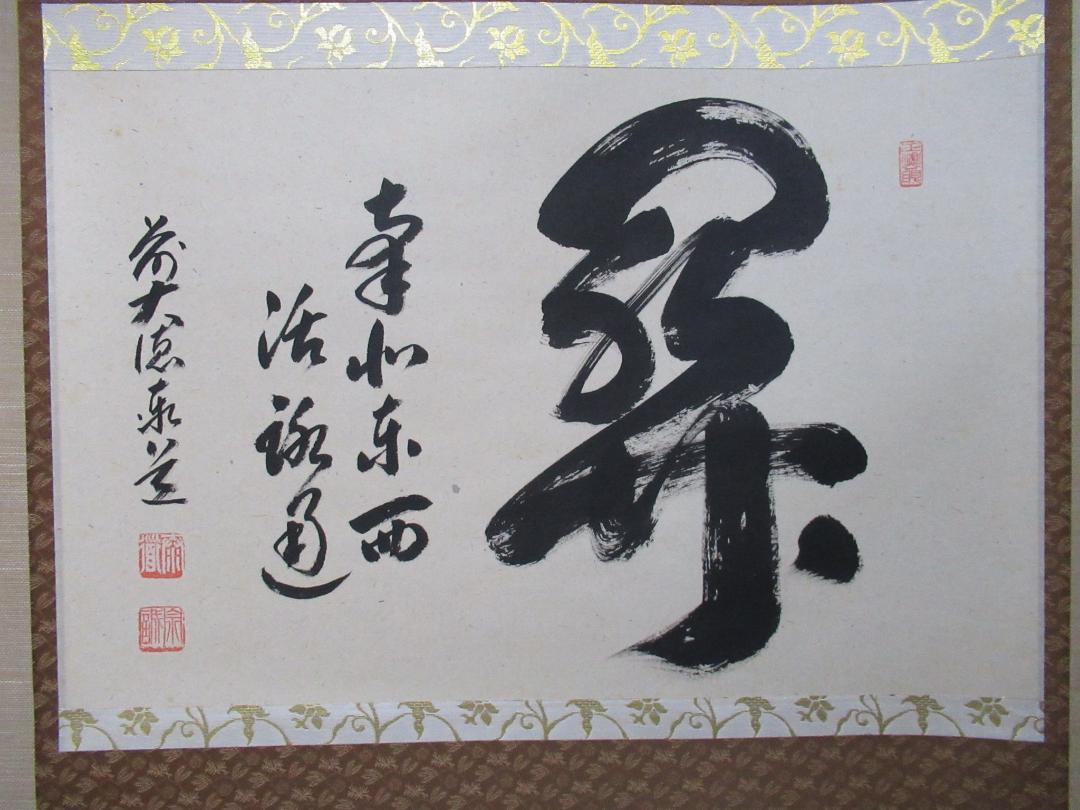 關
南北東西
活路通
前大徳泰道